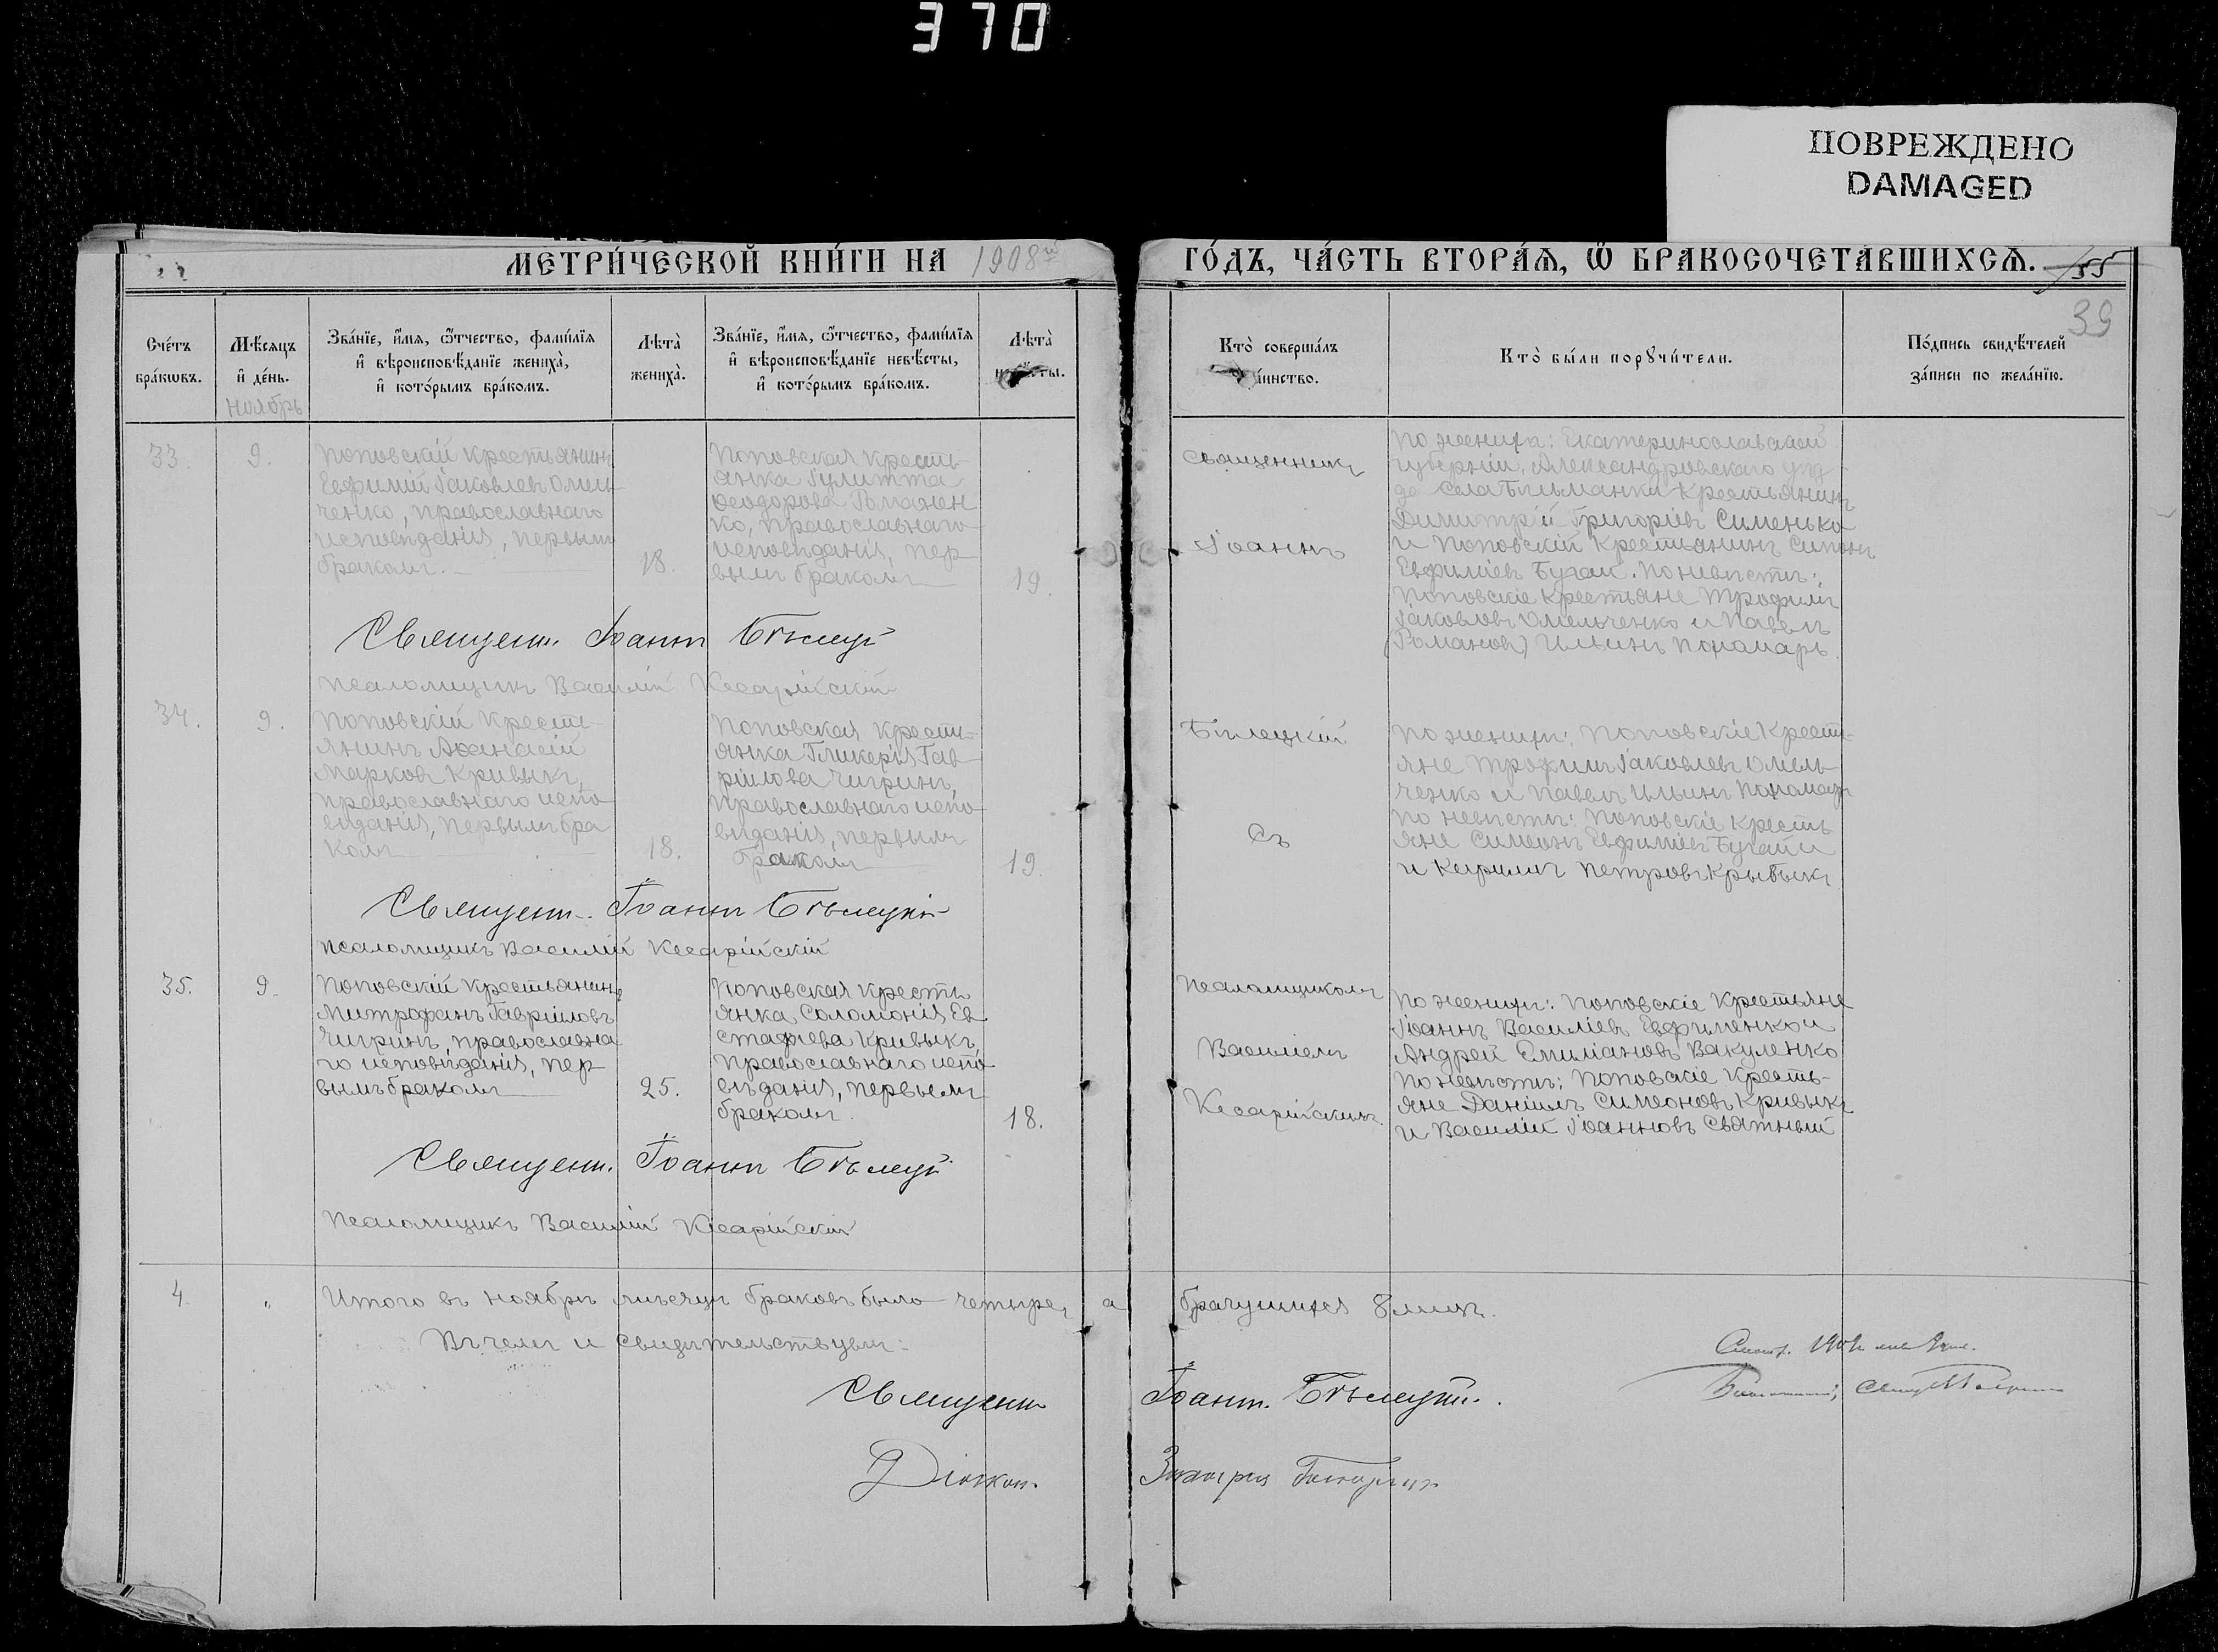 370
ПОВРЕЖДЕНО
DAMAGED
МЕТРИ́ЧЕСКОЙ КНИ́ГИ НА 1908й ГО́ДЪ, ЧА́СТЬ ВТОРА́Я, Ѿ БРАКОСОЧЕТАВШИХСЯ. 55
39
Сче́тъ бра́кѡвъ.
Мѣ́сяцъ и҆ де́нь.
ноябрь
Зва́нїе, и҆́мя, ѻ҆́тчество, фами́лїя
и҆ вѣроисповѣ́данїе жениха̀,
и҆ кото́рымъ бра́комъ.
Лѣта̀ жениха̀.
Зва́нїе, и҆́мя, ѻ҆́тчество, фами́лїя
и҆ вѣроисповѣ́данїе невѣ́сты,
и҆ кото́рымъ бра́комъ.
Лѣта̀
Кто̀ соверша́лъ
а́инство.
Кто̀ бы́ли порꙋчи́тели.
По́дпись свидѣ́телей
за́писи по жела́нїю.
33.
9.
Поповскій крестьянинъ
Евфимій Іаковлевъ Омель-
ченко, православнаго
исповѣданія, первымъ
бракомъ.
18.
Поповская кресть-
янка Іулитта
Ѳеодорова Романен
ко, православнаго
исповѣданія, пер-
вымъ бракомъ
19.
Священникъ
Іоаннъ
По женихѣ: Екатеринославской
губерніи, Александровскаго уѣз-
да села Бѣльманки крестьянинъ
Димитрій Григоріевъ Сименько
и Поповскій крестьянинъ Симеонъ
Евфиміевъ Бугай. По невѣстѣ:
Поповскіе крестьяне Трофимъ
Іаковлевъ Омельченко и Павелъ
(Романовъ) Ильинъ Пономарь.
Священ. Іоаннъ Бѣлецкій
Псаломщикъ Василій Кесарійскій
34.
9.
Поповскій кресть-
янинъ Аѳанасій
Марковъ Кривыкъ,
православнаго испо-
вѣданія, первымъ бра
комъ
18.
Поповская кресть-
янка Гликерія Гав-
рiилова Чигринъ,
православнаго испо-
вѣданія, первымъ
бракомъ
19.
Бѣлецкій
Съ
По женихѣ: Поповскіе кресть-
яне Трофимъ Іаковлевъ Омель-
ченко и Павелъ Ильинъ Пономарь
По невѣстѣ: Поповскіе кресть
яне Симеонъ Евфиміевъ Бугай и
и Кириллъ Петровъ Крывыкъ
Священ. Іоаннъ Бѣлецкій
Псаломщикъ Василій Кесарійскій
35.
9.
Поповскій крестьянинъ
Митрофанъ Гавріиловъ
Чигринъ, православна
го исповѣданія, пер
вымъ бракомъ
25.
Поповская кресть
янка Соломонія Ев
стафіева Кривыкъ,
православнаго испо
вѣданія, первымъ
бракомъ.
18.
Псаломщикомъ
Василіемъ
Кесарійскимъ.
По женихѣ: Поповскіе крестьяне
Іоаннъ Василіевъ Евфименко и
Андрей Емиліановъ Вакуленко
По невѣстѣ: Поповскіе кресть-
яне Даніилъ Симеоновъ Кривыкъ
и Василій Іоанновъ Святный
Священ. Іоаннъ Бѣлецкій
Псаломщикъ Василій Кесарійскій
4.
"
Итого въ ноябрѣ мѣсяцѣ браковъ было четыре, а брачущихся 8 лицъ.
Въ чемъ и свидѣтельствуемъ:
Священн. Іоаннъ Бѣлецкій.
Діаконъ